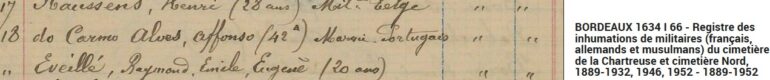 17 Haussens, Henri (28 ans) Milit. belge " "
18 do Carmo Alves, Affonso (42 a) Marin Portugais " "
" Eveillé, Raymond, Emile, Eugene (20 ans)
BORDEAUX 1634 I 66 - Registre des
inhumations de militaires (français,
allemands et musulmans) du cimetière
de la Chartreuse et cimetière Nord,
1889-1932, 1946, 1952 - 1889-1952